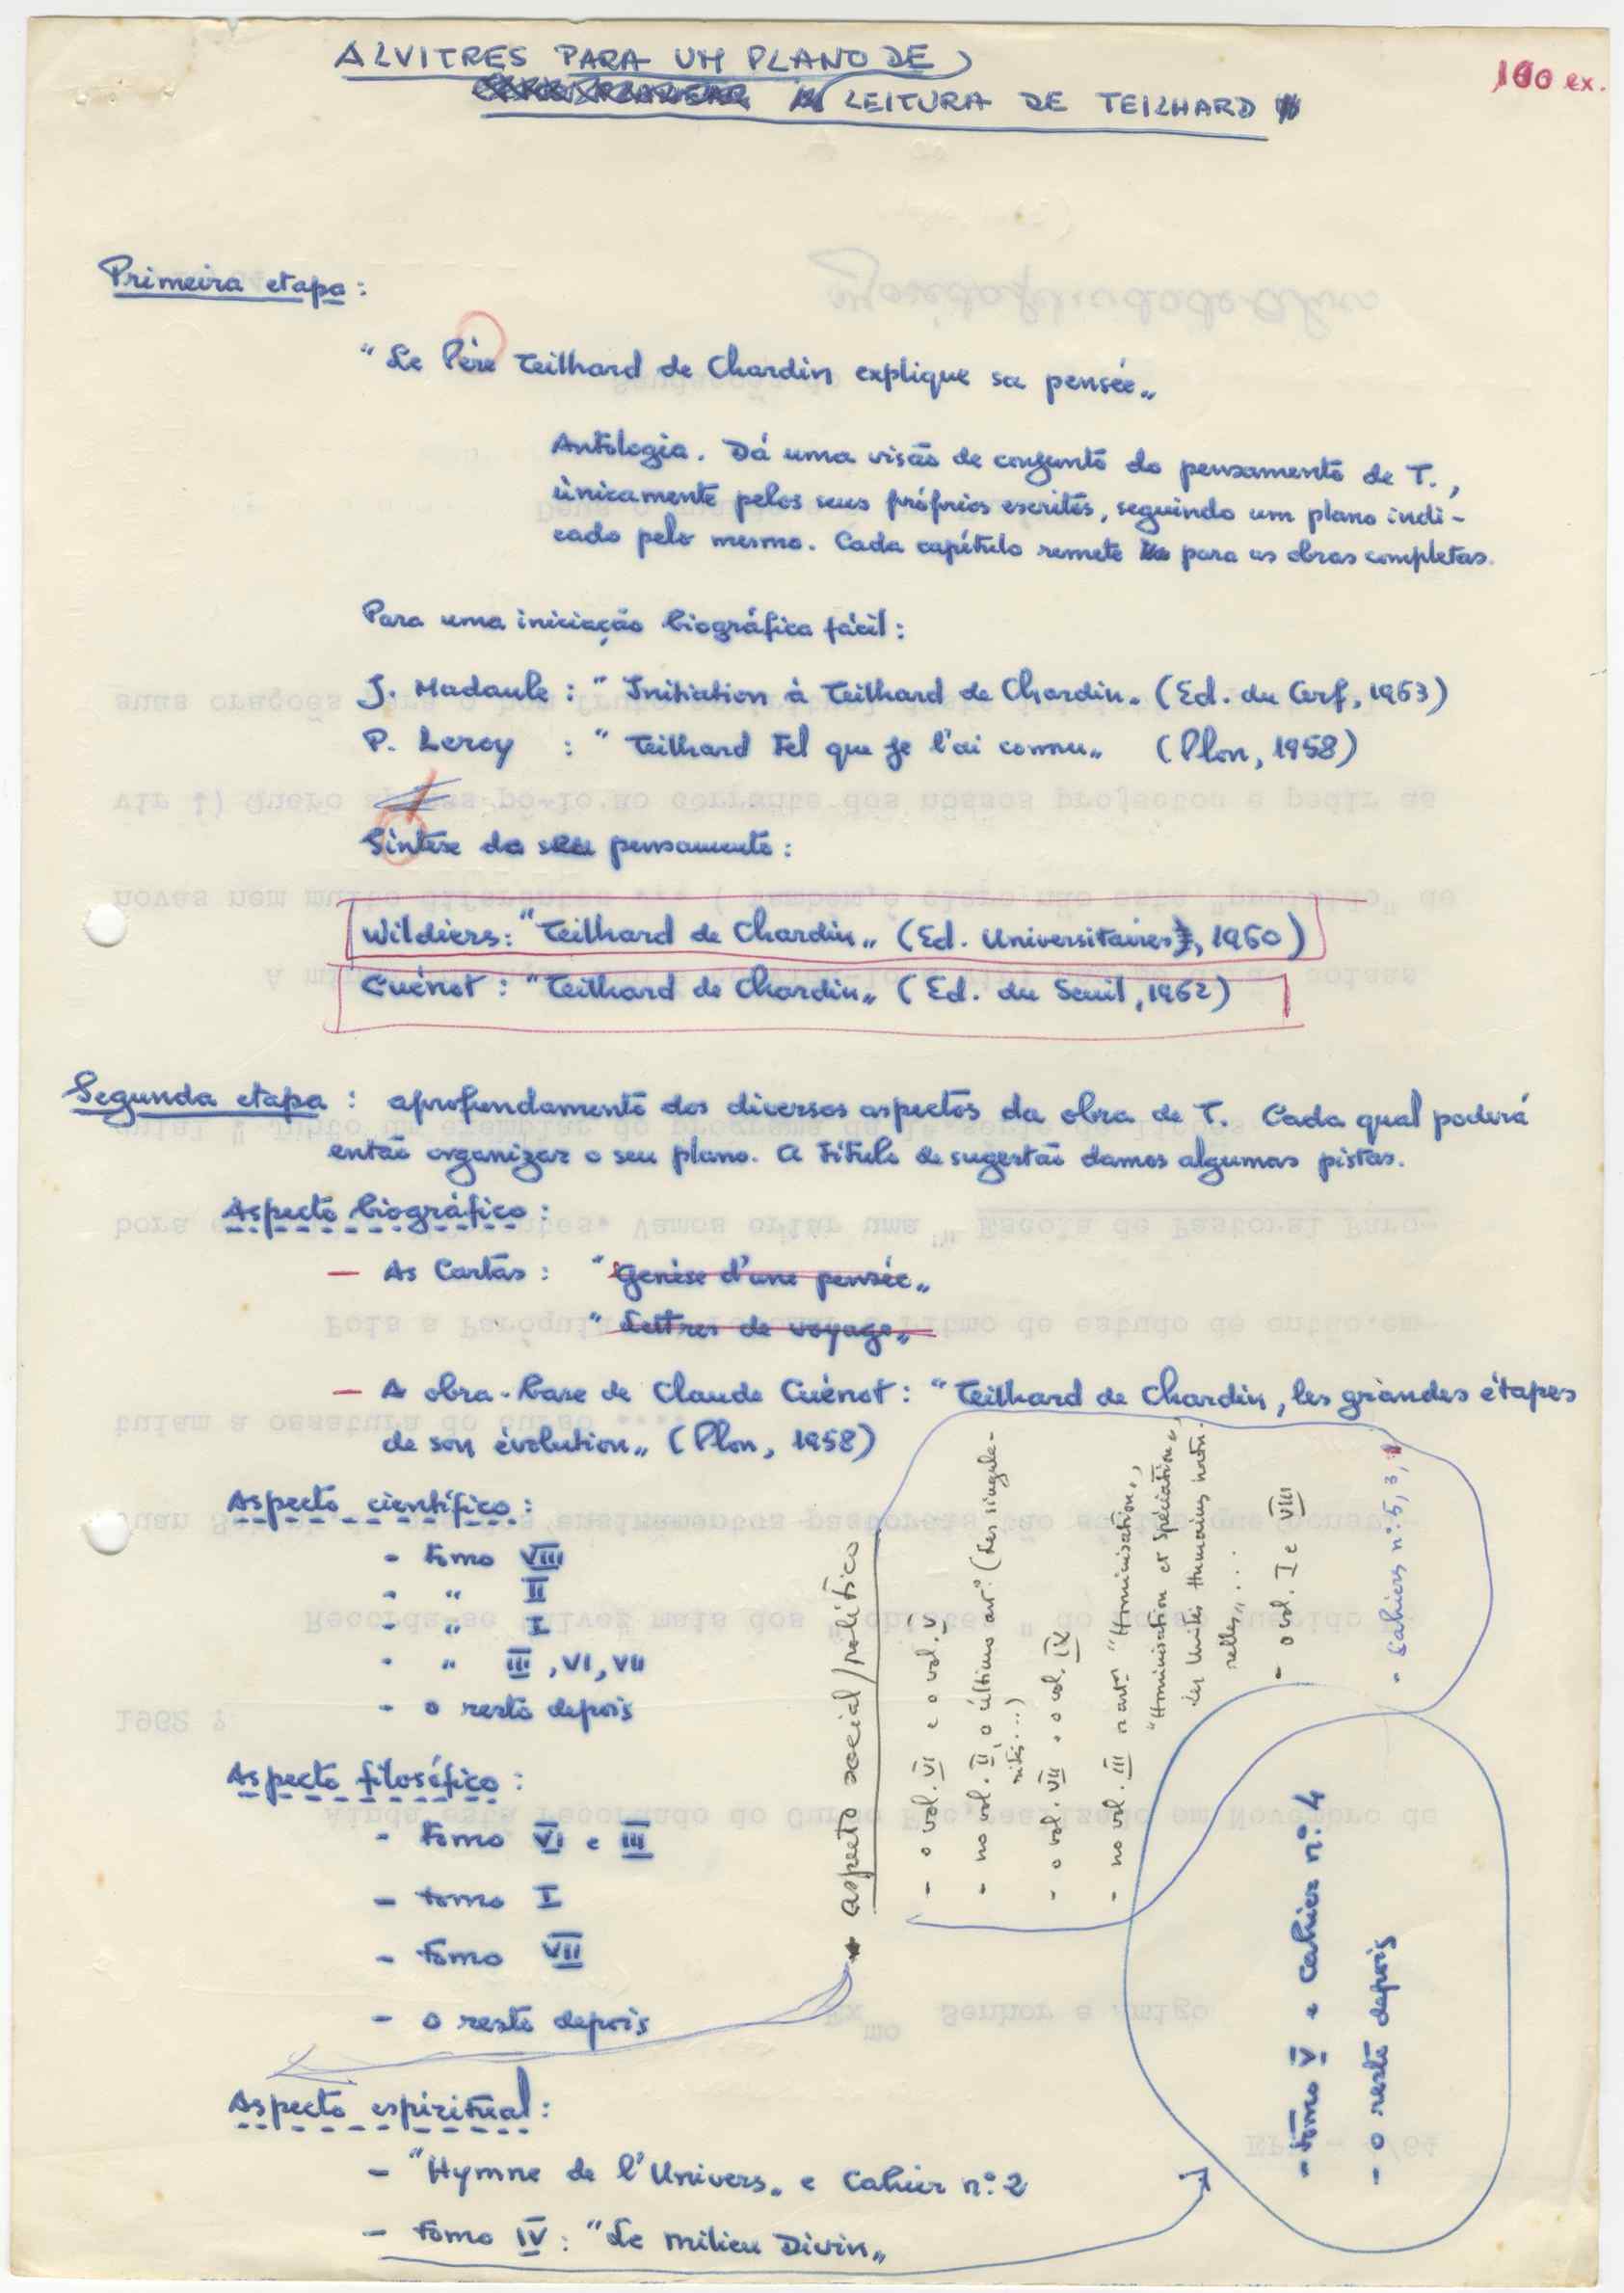 ALVITRES PARA UM PLANO DE
LEITURA DE TEILHARD
100 ex.
Primeira etapa:
"Le Père Teilhard de Chardin explique sa pensée„
Antologia. Dá uma visão de conjunto do pensamento de T.,
ùnicamente pelos seus próprios escritos, seguindo um plano indi-
cado pelo mesmo. Cada capítulo remete para as obras completas.
Para uma iniciação biográfica fácil:
J. Madaule: "Initiation à Teilhard de Chardin„ (Ed. du Cerf, 1963)
P. Leroy : "Teilhard tel que je l'ai connu„ (Plon, 1958)
Síntese do seu pensamento:
Wildiers: "Teilhard de Chardin„ (Ed. Universitaires, 1960)
Cuénot: "Teilhard de Chardin„ (Ed. du Seuil, 1962)
Segunda etapa: aprofundamento dos diversos aspectos da obra de T. Cada qual poderá
então organizar o seu plano. A título de sugestão damos algumas pistas.
Aspecto biográfico:
— As Cartas: "Genèse d'une pensée„
"Lettres de voyage„
— A obra-base de Claude Cuénot: "Teilhard de Chardin, les grandes étapes
de son évolution„ (Plon, 1958)
Aspecto científico:
- tomo VIII
- " II
- " I
- " III, VI, VII
- o resto depois
Aspecto filosófico:
- tomo VI e III
- tomo I
- tomo VII
- o resto depois
aspecto social/político
- o vol. VI e o vol. V
- no vol. II, o último art.º (Les singula-
rités...)
- o vol. VII e o vol. IV
- no vol. III o art.º "Hominisation„,
"Hominisation et Spéciation„,
Les Unités Humaines natu-
relles„...
- o vol. I e VIII
- Cahiers nº. 5, 3,
Aspecto espiritual:
- "Hymne de l'Univers„ e Cahier nº. 2
- tomo IV: "Le Milieu Divin„
- tomo V e Cahier nº. 4
- o resto depois